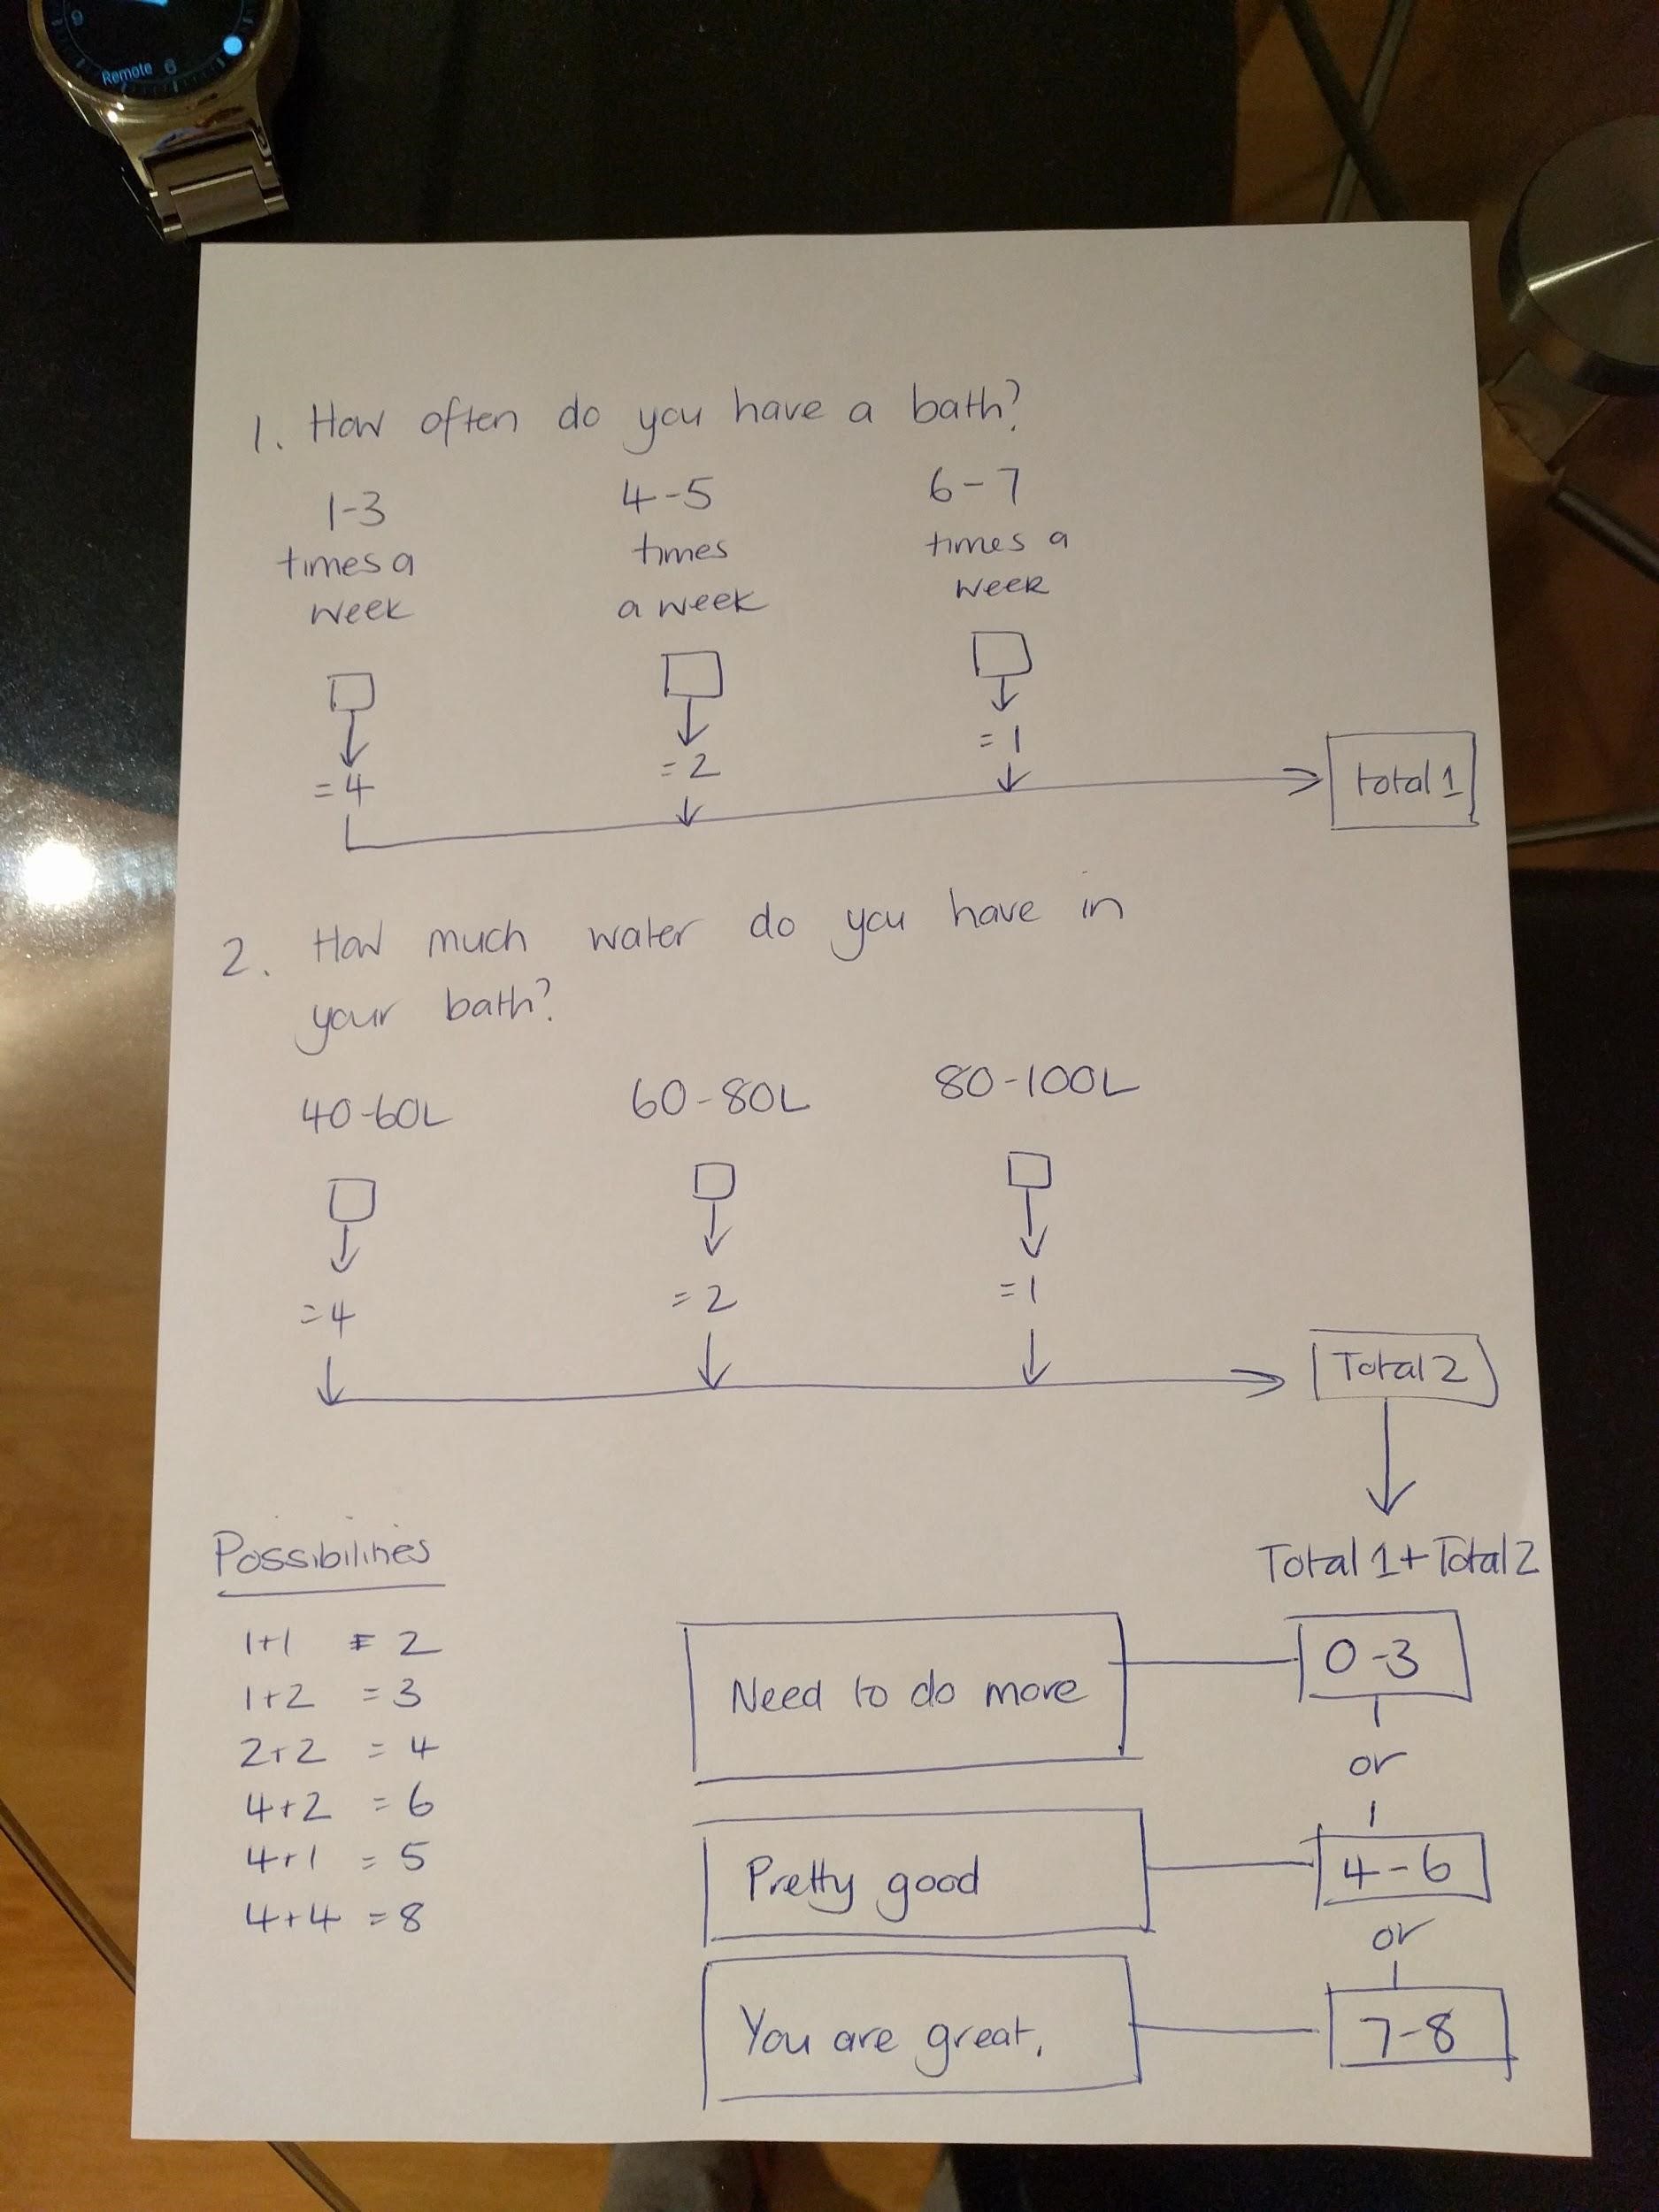 Remote
6
9
1. How often do you have a bath?
1-3 times a week
4-5 times a week
6-7 times a week
=4
=2
=1
total 1
2. How much water do you have in
your bath?
40-60L
60-80L
80-100L
=4
=2
=1
Total 2
Total 1 + Total 2
Possibilities
1+1 = 2
1+2 = 3
2+2 = 4
4+2 = 6
4+1 = 5
4+4 = 8
Need to do more
0-3
or
Pretty good
4-6
or
You are great.
7-8